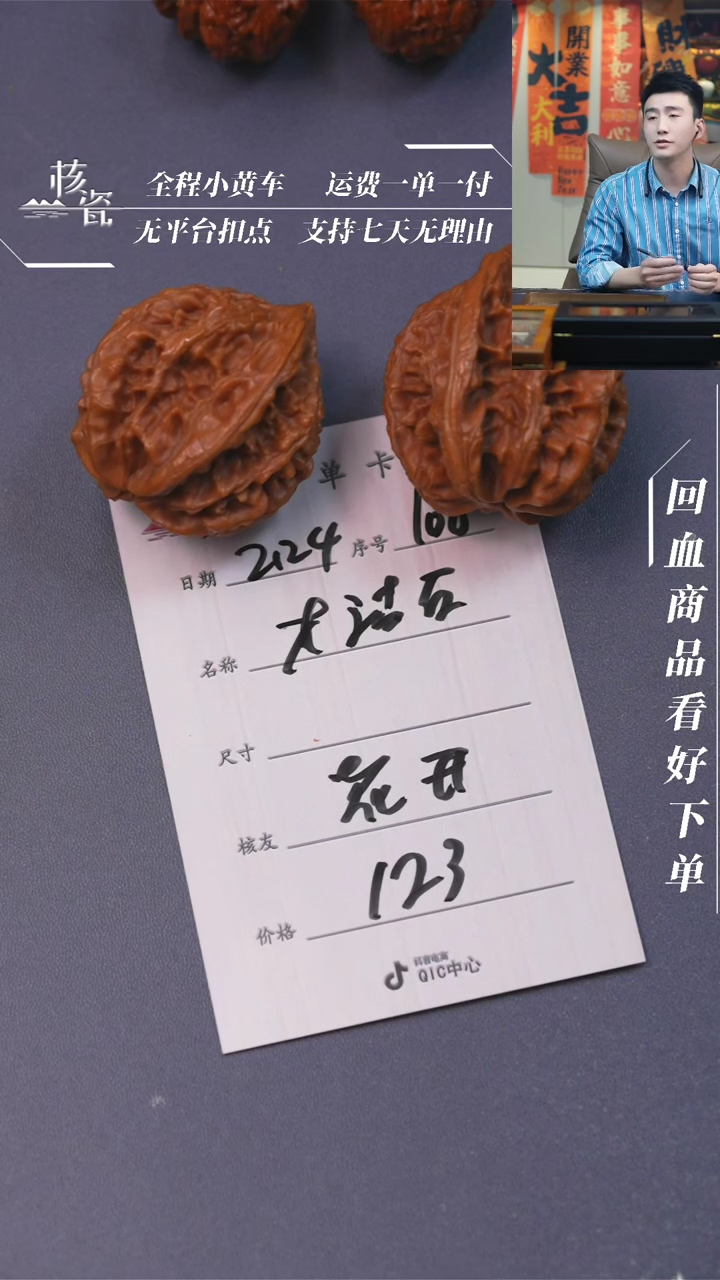 核瓷
全程小黄车 运费一单一付
无平台扣点 支持七天无理由
開業
大吉
大利
事事如意
财
单卡
日期 2124 序号 100
名称
尺寸
核友 花开
价格 123
抖音电商
QIC中心
回血商品看好下单